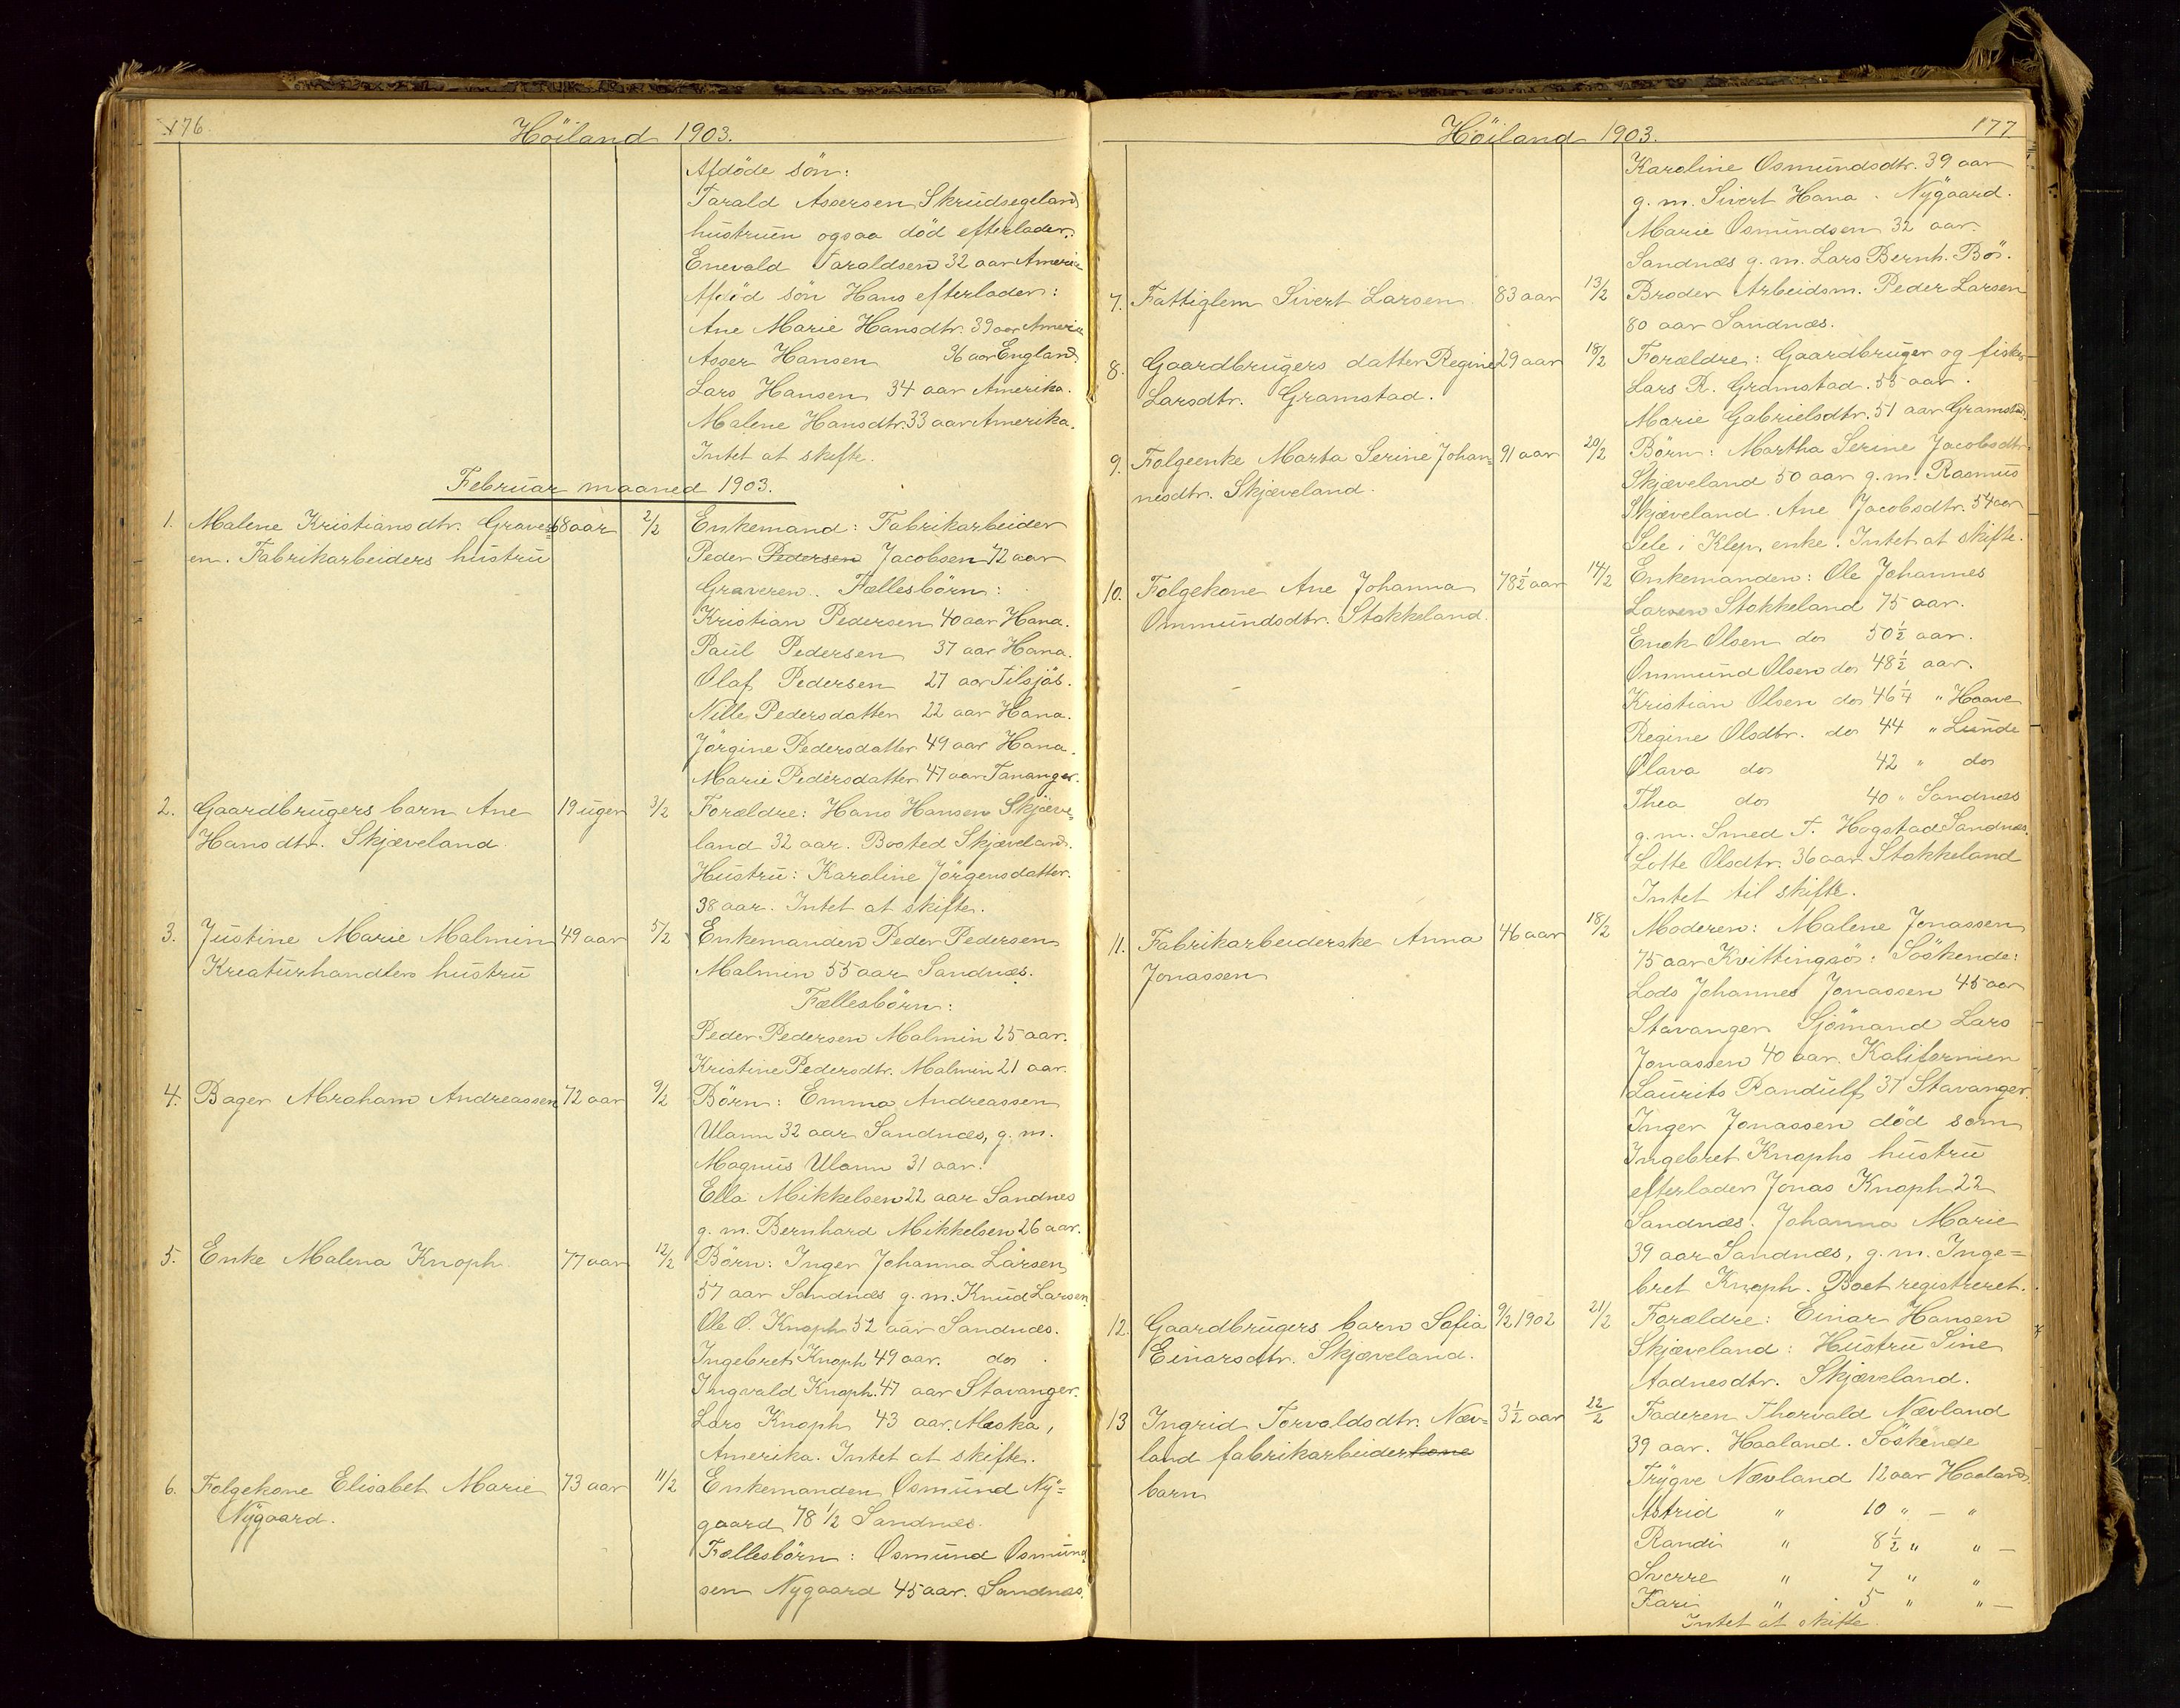 176.
Höiland 1903.
Afdöde sön:
Tarald Assersen Skrudsegeland
hustruen ogsaa död efterlader:
Enevald Taraldsen 32 aar Amerika
Afdöd sön Hans efterlader:
Ane Marie Hansdtr. 39 aar Amerika
Asser Hansen 36 aar England
Lars Hansen 34 aar Amerika.
Malene Hansdtr. 33 aar Amerika.
Intet at skifte.
Februar maaned 1903.
1. Malene Kristiansdtr. Graver= 68 aar 2/2 Enkemand: Fabrikarbeider
en. Fabrikarbeiders hustru Peder Pedersen Jacobsen 72 aar
Graveren. Fællesbörn:
Kristian Pedersen 40 aar Hana.
Paul Pedersen 37 aar Hana.
Olaf Pedersen 27 aar Tilsjös.
Nille Pedersdatter 22 aar Hana.
Jörgine Pedersdatter 49 aar Hana.
Marie Pedersdatter 47 aar Tananger.
2. Gaardbrugers barn Ane 19 uger 3/2 Forældre: Hans Hansen Skjæve=
Hansdtr. Skjæveland. land 32 aar. Bosted Skjæveland.
Hustru: Karoline Jörgensdatter.
38 aar. Intet at skifte.
3. Justine Marie Malmin 49 aar 5/2 Enkemanden Peder Pedersen
Kreaturhandlers hustru Malmin 55 aar Sandnæs.
Fællesbörn:
Peder Pedersen Malmin 25 aar.
Kristine Pedersdtr. Malmin 21 aar.
4. Bager Abraham Andreassen 72 aar 9/2 Börn: Emma Andreassen
Ulann 32 aar Sandnæs, g. m.
Magnus Ulann 31 aar.
Ella Mikkelsen 22 aar Sandnes
g. m. Bernhard Mikkelsen 26 aar.
5. Enke Malena Knoph 77 aar 12/2 Börn: Inger Johanna Larsen
57 aar Sandnæs g. m. Knud Larsen
Ole O. Knoph 52 aar Sandnæs.
Ingebret Knoph 49 aar. do
Ingvald Knoph. 47 aar Stavanger.
Lars Knoph 43 aar. Alaska,
Amerika. Intet at skifte.
6. Folgekone Elisabet Marie 73 aar 11/2 Enkemanden Osmund Ny=
Nygaard. gaard 78 1/2 Sandnæs.
Fællesbörn: Osmund Osmund
sen Nygaard 45 aar. Sandnæs.
Höiland 1903.
177
Karoline Osmundsdtr. 39 aar
g. m. Sivert Hana. Nygaard.
Marie Osmundsen 32 aar.
Sandnæs g. m. Lars Bernh. Bö.
7. Fattiglem Sivert Larsen 83 aar 13/2 Broder Arbeidsm. Peder Larsen
80 aar Sandnæs.
8. Gaardbrugers datter Regine 29 aar 18/2 Forældre: Gaardbruger og fisker
Larsdtr. Gramstad. Lars R. Gramstad. 55 aar.
Marie Gabrielsdtr. 51 aar Gramstad.
9. Folgeenke Marta Serine Johan= 91 aar 20/2 Börn: Martha Serine Jacobsdtr.
nesdtr. Skjæveland. Skjæveland 50 aar g. m. Rasmus
Skjæveland. Ane Jacobsdtr. 54 aar
Sele i Klep, enke. Intet at skifte.
10. Folgekone Ane Johanna 78 1/2 aar 14/2 Enkemanden: Ole Johannes
Ommundsdtr. Stokkeland. Larsen Stokkeland 75 aar.
Enok Olsen do 50 1/2 aar.
Ommund Olsen do 48 1/2 aar.
Kristian Olsen do 46 1/4 " Haave
Regine Olsdtr. do 44 " Lunde
Olava do 42 " do
Thea do 40 " Sandnæs
g. m. Smed T. Hogstad Sandnæs.
Lotte Olsdtr. 36 aar Stokkeland
Intet til skifte.
11. Fabrikarbeiderske Anna 46 aar 18/2 Moderen: Malene Jonassen
Jonassen 75 aar Kvittingsö: Söskende:
Lods Johannes Jonassen 45 aar
Stavanger Sjömand Lars
Jonassen 40 aar. Kalifornien
Laurits Randulf 37 Stavanger.
Inger Jonassen död som
Ingebret Knophs hustru
efterlader Jonas Knoph 22
Sandnæs. Johanna Marie
39 aar Sandnæs, g. m. Inge=
bret Knoph. Boet registreret.
12. Gaardbrugers barn Sofia 9/2 1902 21/2 Forældre: Einar Hansen
Einarsdtr. Skjæveland. Skjæveland: Hustru Sine
Aadnesdtr. Skjæveland.
13 Ingrid Torvaldsdtr. Næv= 3 1/2 aar 22/2 Faderen Thorvald Nævland
land fabrikarbeiderkone 39 aar. Haaland. Söskende
barn Trygve Nævland 12 aar Haaland.
Astrid " 10 " — "
Randi " 8 1/2 " " —
Sverre " 7 " "
Kari " 5 " " —
Intet at skifte.